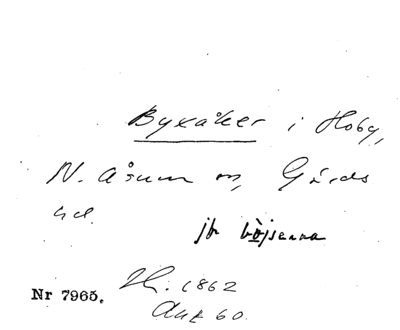 Byxåker i Hoby,
N. Åsum sn, Gärds
hd.
jfr böjserna
Nr 7965.
1862
Akt 60.